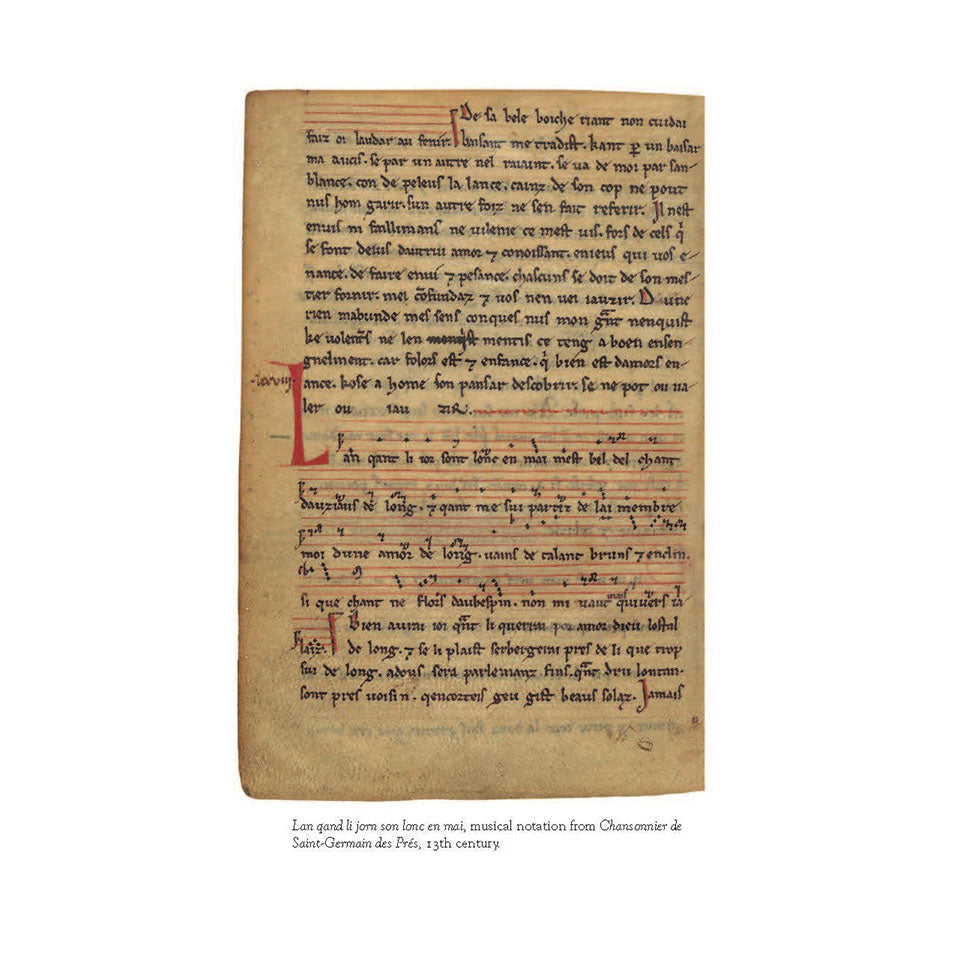 De sa bele boiche riant non cuidai
faiz oi laudar au fenir. baisant me tradist. kant ꝑ un baisar
ma aucis. se par un autre nel raiaint. se va de moi par san-
blance. con de peleus la lance. cainz de son cop ne pout
nus hom garir. sun autre foiz ne sen fait referir. Il nest
enuis ni faillimans ne vilenie ce mest vis. fors de cels q̃
se font devis dautrui amor ⁊ conoissant. enieus qui vos e-
nance. de faire enui ⁊ pesance. chascuns se doit de son mes-
tier fornir. mei cõfundaz ⁊ vos nen vei iauzir. De une
rien mabunde mes sens conques nus mon gñt nenquist
ke volent̃s ne len mentis ce teng a boen ensen-
gnelment. car folors est ⁊ enfance. q̃ bien est damors en-
lance. kose a home son pansar descobrir. se ne pot ou va-
ler ou iau ziR.
Lan qant li ior sont lonc en mai mest bel del chant
dauziaus de long. ⁊ qant me sui partiz de lai membre
moi dune amor de long. vains de talant bruns ⁊ enclin.
si que chant ne flors daubespin. non mi vaut mais quivers ia
laiz. Bien aurai ioi qñt li querrai por amor dieu lostal
de long. ⁊ se li plaist serbergerai pres de li que trop
sui de long. adous sera parlemanz fins. qñt dru lontan.
sont pres voisin. qencorteis geu gist beaus solaz. Jamais
Lan qand li jorn son lonc en mai, musical notation from Chansonnier de
Saint-Germain des Prés, 13th century.